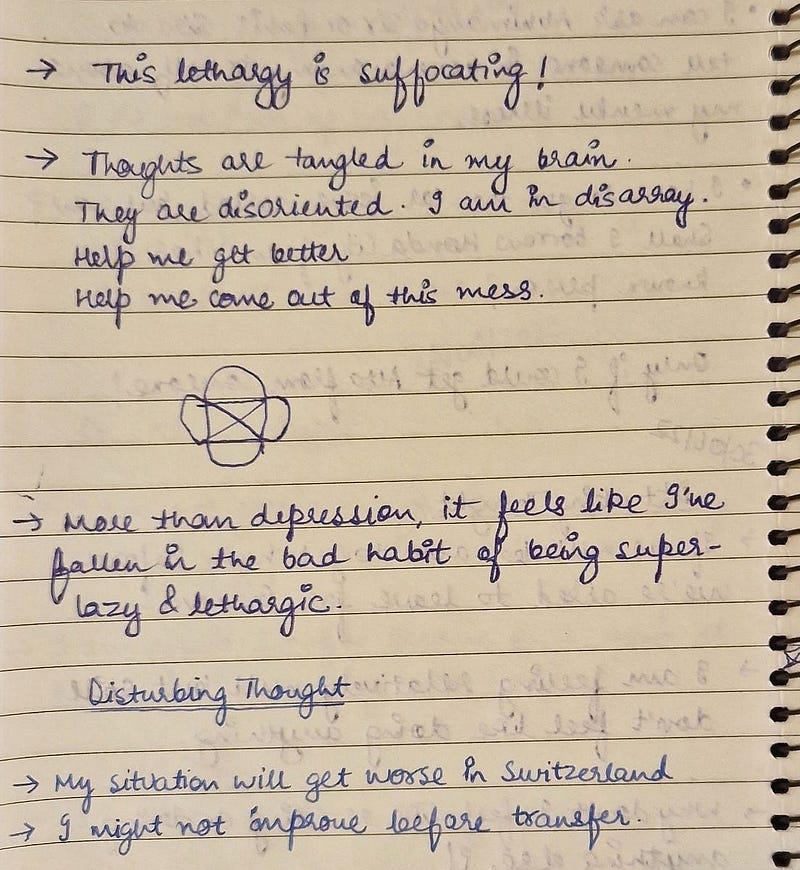 → This lethargy is suffocating!
→ Thoughts are tangled in my brain.
They are disoriented. I am in disarray.
Help me get better
Help me come out of this mess.
→ More than depression, it feels like I've
fallen in the bad habit of being super-
lazy & lethargic.
Disturbing Thought
→ My situation will get worse in Switzerland
→ I might not improve before transfer.